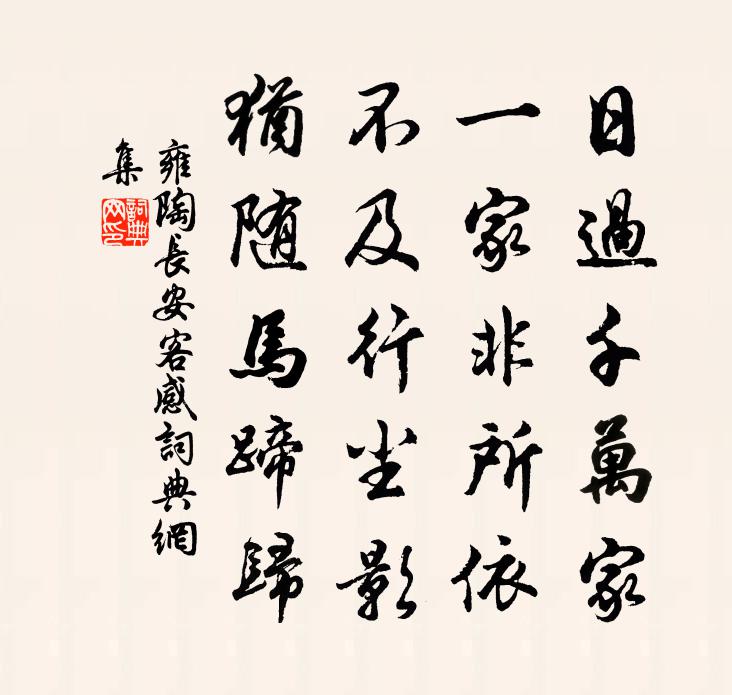 日過千萬家
一家非所依
不及行尘影
猶随馬蹄歸
雍陶長安客感詞典網
集
詞典
网印